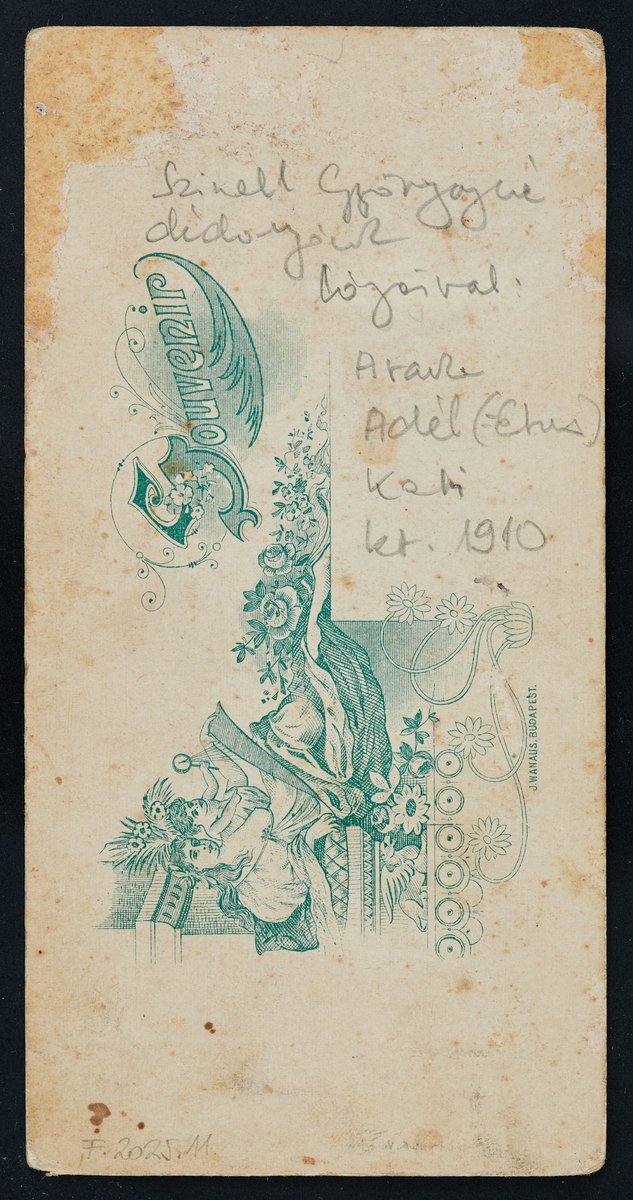 Szinell Györgyné
dédanyánk
lányaival:
Aranka
Adél (-Etus)
Kati
kt. 1910
Souvenir
J. WANAUS, BUDAPEST.
F. 2025. 11